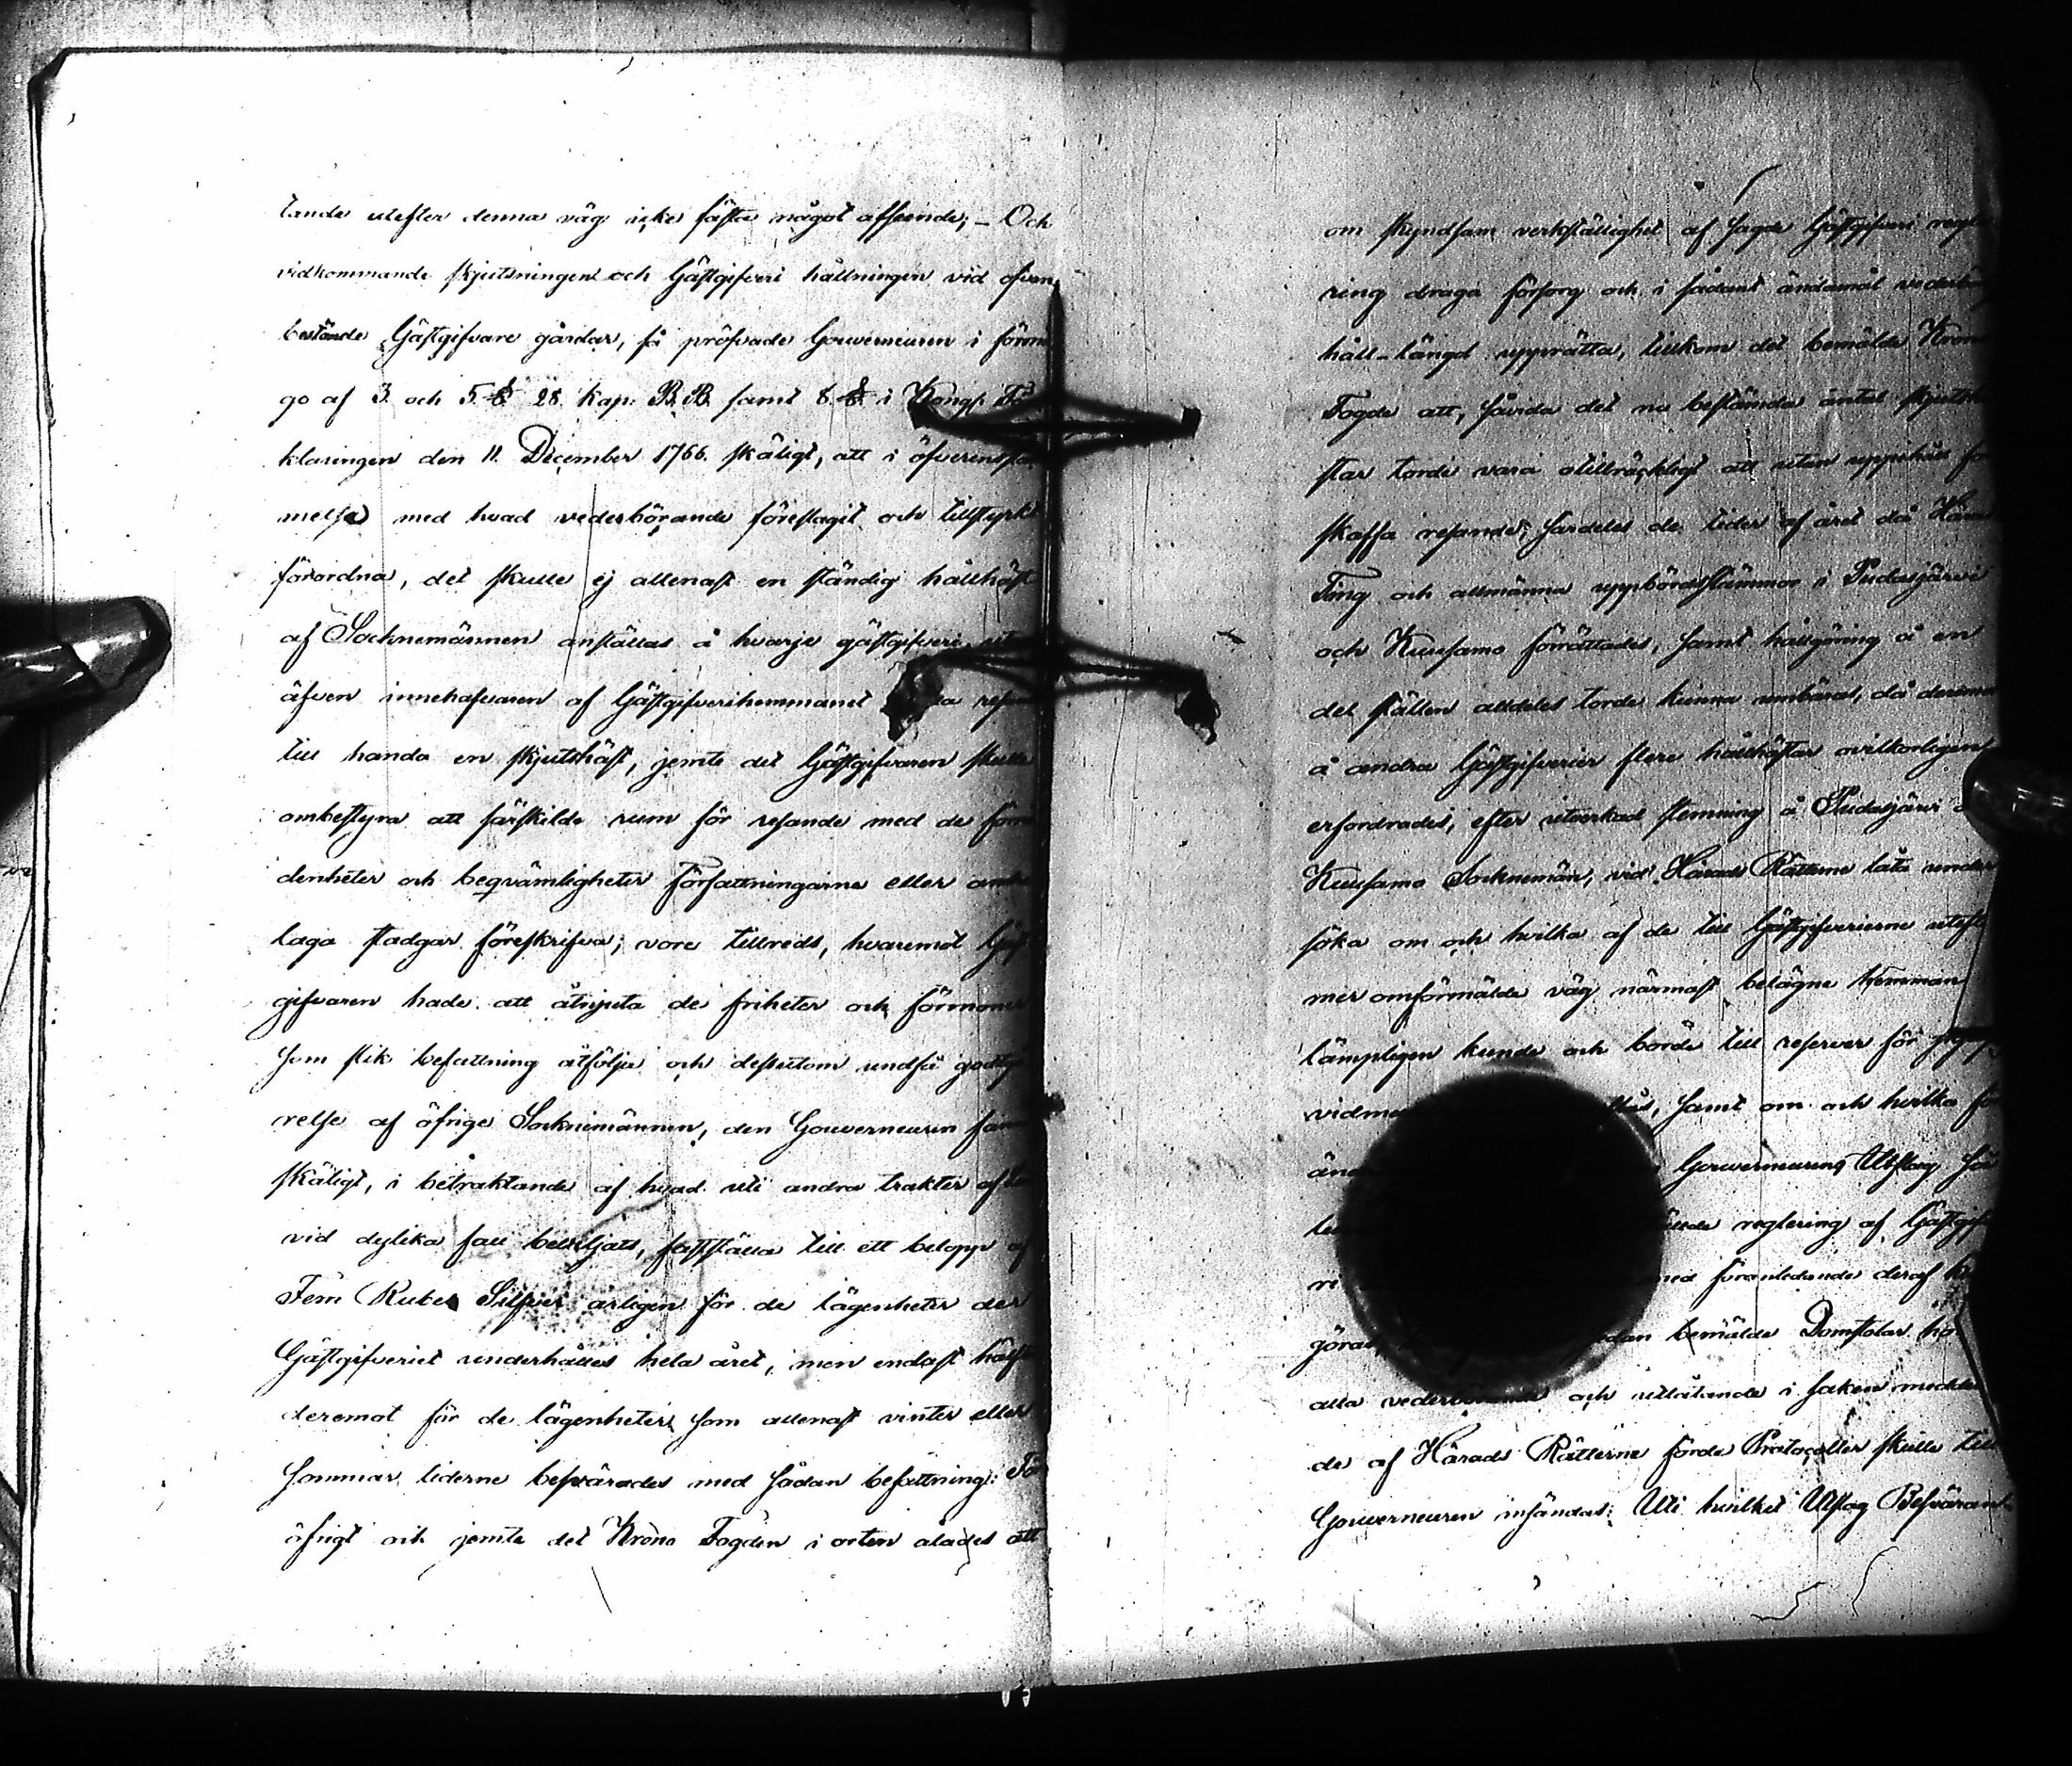 tande utefter denna väg icke fästa något afseende; – Och
vidkommande skjutsningen och Gästgifveri hållningen vid ofven
bestände Gästgifvare gårdar, så pröfvade Gouverneuren i förm
go af 3. och 5. §§. 28. Kap: B. B. samt 8. §. i Kongl. För
klaringen den 11. December 1766. skäligt, att i öfverensstäm
melse med hvad vederbörande föreslagit och tillstyrkt
förordna, det skulle ej allenast en ständig hållhäst
af Socknemännen anställas å hvarje gästgifveri, utan
äfven innehafvaren af Gästgifverihemmanet resan
till handa en skjutshäst, jemte det Gästgifvaren skulle
ombestyra att särskilde rum för resande med de förno
denheter och beqvämligheter Författningarne eller andra
laga stadgar föreskrifva, vore tillreds, hvaremot Gäst
gifvaren hade att åtnjuta de friheter och förmoner
som slik befattning åtfölja och dessutom undfå godtgö
relse af öfrige Socknemännen, den Gouverneuren fann
skäligt, i betraktande af hvad uti andra trakter af
vid dylika fall beviljats, fastställa till ett belopp af
Fem Rubel Silfver årligen för de lägenheter der
Gästgifveriet underhålles hela året, men endast hälf
deremot för de lägenheter, som allenast vinter eller
sommar tiderne besvärades med sådan befattning: För
öfrigt och jemte det Krono Fogden i orten ålades att
om skyndsam verkställighet af sagde Gästgifveri regle
ring draga försorg och i sådant ändamål vederbör
håll-längd upprätta, tillkom det bemälde Krono
Fogde att, såvida det nu bestämda antal skjutshä
star torde vara otillräckligt att utan uppehåll for
skaffa resande, särdeles de tider af året då Härads
Ting och allmänna uppbördsstämmor i Pudasjärvi
och Kuusamo förrättades, samt hållgöring å en
del ställen alldeles torde kunna umbäras, då deremot
å andra Gästgifverier flere hållhästar ovilkorligen
erfordrades, efter utverkad stemning å Pudasjärvi
Kuusamo Socknemän, vid Härads Rätterne låta under
söka om och hvilka af de till Gästgifverierne utefter
mer omförmälde väg närmast belägne hemman
lämpligen kunde och borde till reserver för
samt om och hvilka för
än Gouverneurens Utslag
reglering af Gästgif
med föranledande deraf
göras, bemälde Domstolar
alla vederbörande och utlåtande i saken medde
de af Härads Rätterne förde Protocoller skulle till
Gouverneuren insändas: Uti hvilket Utslag Besvären